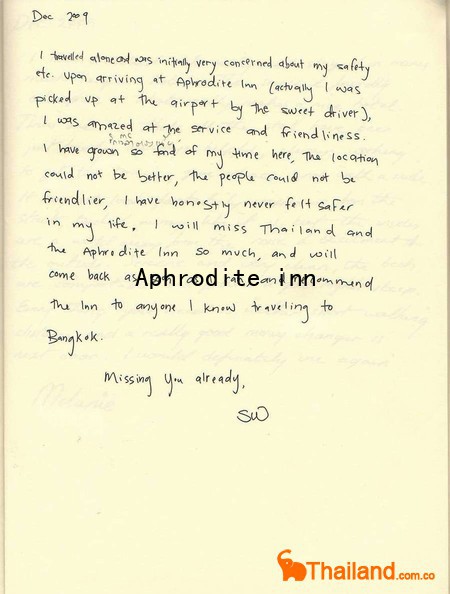 Dec 2009
I travelled alone and was initially very concerned about my safety
etc. Upon arriving at Aphrodite Inn (actually I was
picked up at the airport by the sweet driver),
I was amazed at the service and friendliness.
I have grown so fond of my time here, the location
could not be better, the people could not be
friendlier, I have honestly never felt safer
in my life. I will miss Thailand and
the Aphrodite Inn so much, and will
come back as recommend
Aphrodite inn
the Inn to anyone I know traveling to
Bangkok.
Missing you already,
SW
Thailand.com.co